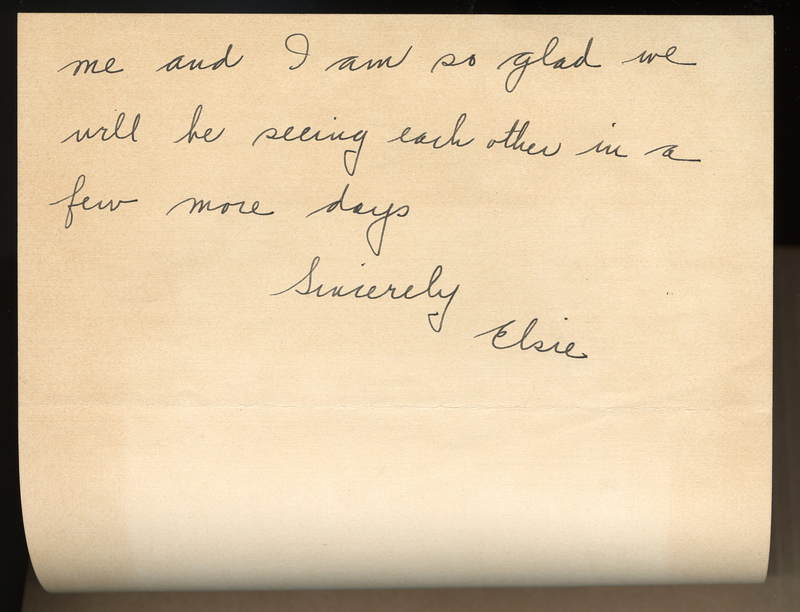 me and I am so glad we
will be seeing each other in a
few more days
Sincerely
Elsie